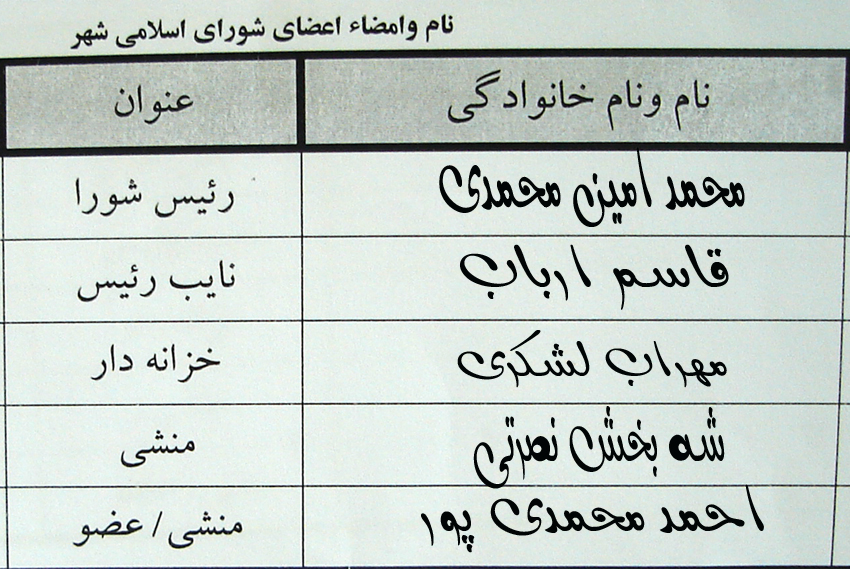 نام وامضاء اعضای شورای اسلامی شهر
نام ونام خانوادگی عنوان
محمد امین محمدی رئیس شورا
قاسم ارباب نایب رئیس
مهراب لشکری خزانه دار
شه بخش نصرتی منشی
احمد محمدی پور منشی / عضو